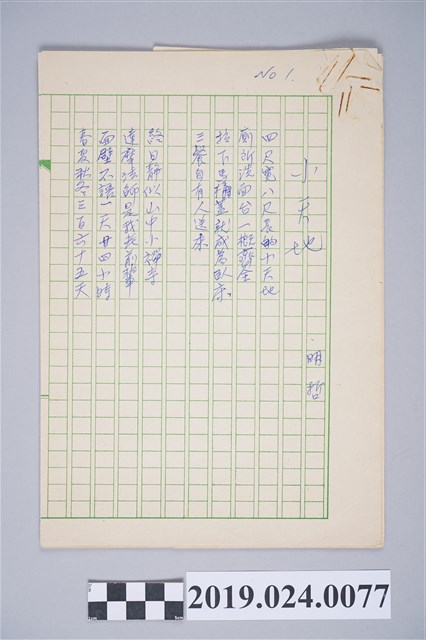 No 1.
小天地
明哲
四尺寬八尺長的小天地
廁所洗面台一概齊全
拉下馬桶蓋就成為臥床
三餐自有人送來
終日靜似山中小禪寺
達摩法師是我老前輩
面壁不語一天廿四小時
春夏秋冬三百六十五天
2019.024.0077